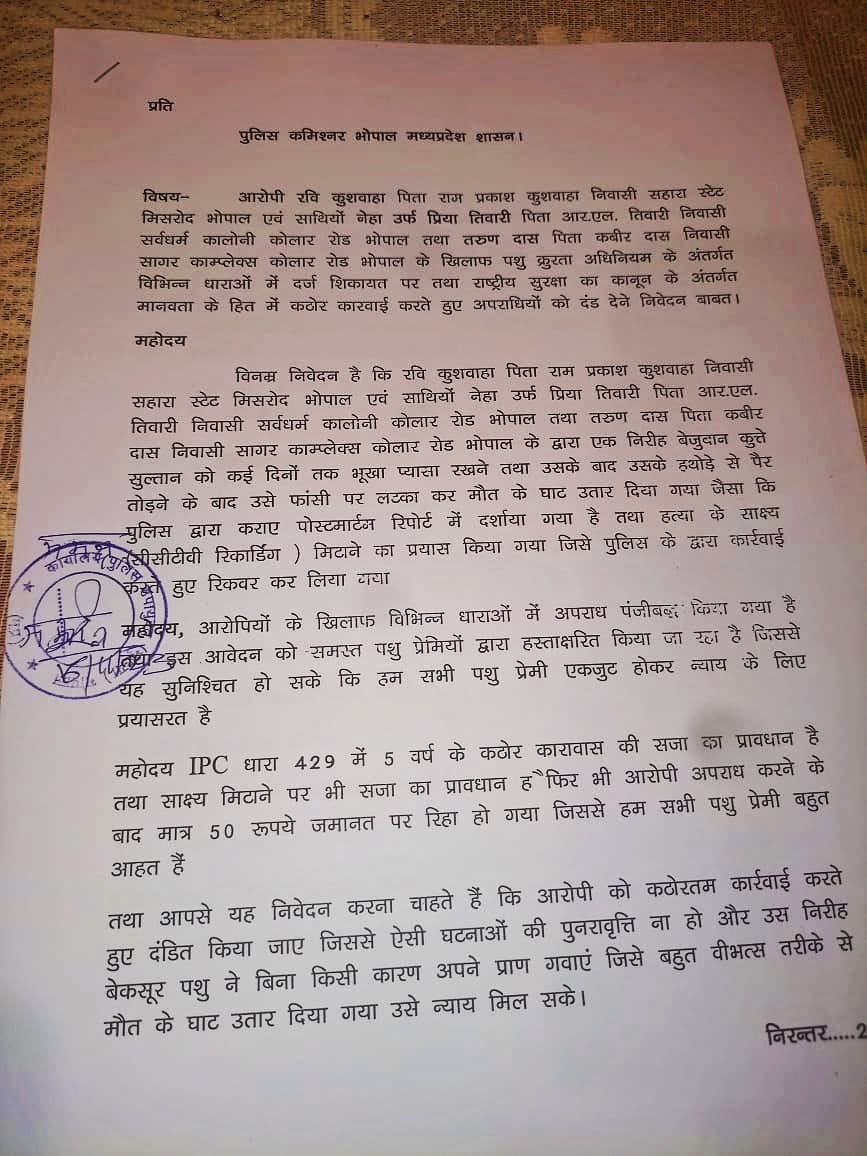 प्रति
पुलिस कमिश्नर भोपाल मध्यप्रदेश शासन।
विषय- आरोपी रवि कुशवाहा पिता राम प्रकाश कुशवाहा निवासी सहारा स्टेट
मिसरोद भोपाल एवं साथियों नेहा उर्फ प्रिया तिवारी पिता आर.एल. तिवारी निवासी
सर्वधर्म कालोनी कोलार रोड भोपाल तथा तरुण दास पिता कबीर दास निवासी
सागर काम्प्लेक्स कोलार रोड भोपाल के खिलाफ पशु क्रुरता अधिनियम के अंतर्गत
विभिन्न धाराओं में दर्ज शिकायत पर तथा राष्ट्रीय सुरक्षा का कानून के अंतर्गत
मानवता के हित में कठोर कारवाई करते हुए अपराधियों को दंड देने निवेदन बाबत।
महोदय
विनम्र निवेदन है कि रवि कुशवाहा पिता राम प्रकाश कुशवाहा निवासी
सहारा स्टेट मिसरोद भोपाल एवं साथियों नेहा उर्फ प्रिया तिवारी पिता आर.एल.
तिवारी निवासी सर्वधर्म कालोनी कोलार रोड भोपाल तथा तरुण दास पिता कबीर
दास निवासी सागर काम्प्लेक्स कोलार रोड भोपाल के द्वारा एक निरीह बेजुदान कुत्ते
सुल्तान को कई दिनों तक भूखा प्यासा रखने तथा उसके बाद उसके हथोड़े से पैर
तोड़ने के बाद उसे फांसी पर लटका कर मौत के घाट उतार दिया गया जैसा कि
पुलिस द्वारा कराए पोस्टमार्टन रिपोर्ट में दर्शाया गया है तथा हत्या के साक्ष्य
(सीसीटीवी रिकार्डिंग ) मिटाने का प्रयास किया गया जिसे पुलिस के द्वारा कार्रवाई
करते हुए रिकवर कर लिया गया
कार्यालय पुलिस
महोदय, आरोपियों के खिलाफ विभिन्न धाराओं में अपराध पंजीबद्ध किया गया है
तथा इस आवेदन को समस्त पशु प्रेमियों द्वारा हस्ताक्षरित किया जा रहा है जिससे
यह सुनिश्चित हो सके कि हम सभी पशु प्रेमी एकजुट होकर न्याय के लिए
प्रयासरत है
महोदय IPC धारा 429 में 5 वर्ष के कठोर कारावास की सजा का प्रावधान है
तथा साक्ष्य मिटाने पर भी सजा का प्रावधान है फिर भी आरोपी अपराध करने के
बाद मात्र 50 रूपये जमानत पर रिहा हो गया जिससे हम सभी पशु प्रेमी बहुत
आहत हैं
तथा आपसे यह निवेदन करना चाहते हैं कि आरोपी को कठोरतम कार्रवाई करते
हुए दंडित किया जाए जिससे ऐसी घटनाओं की पुनरावृत्ति ना हो और उस निरीह
बेकसूर पशु ने बिना किसी कारण अपने प्राण गवाएं जिसे बहुत वीभत्स तरीके से
मौत के घाट उतार दिया गया उसे न्याय मिल सके।
निरन्तर.....2